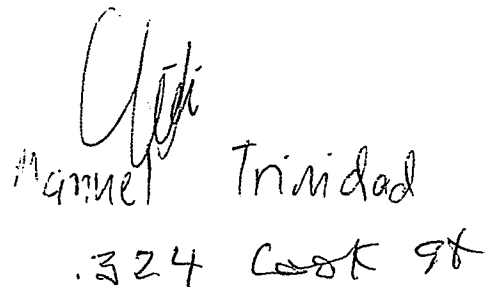 Manuel Trinidad
.324 Cook st